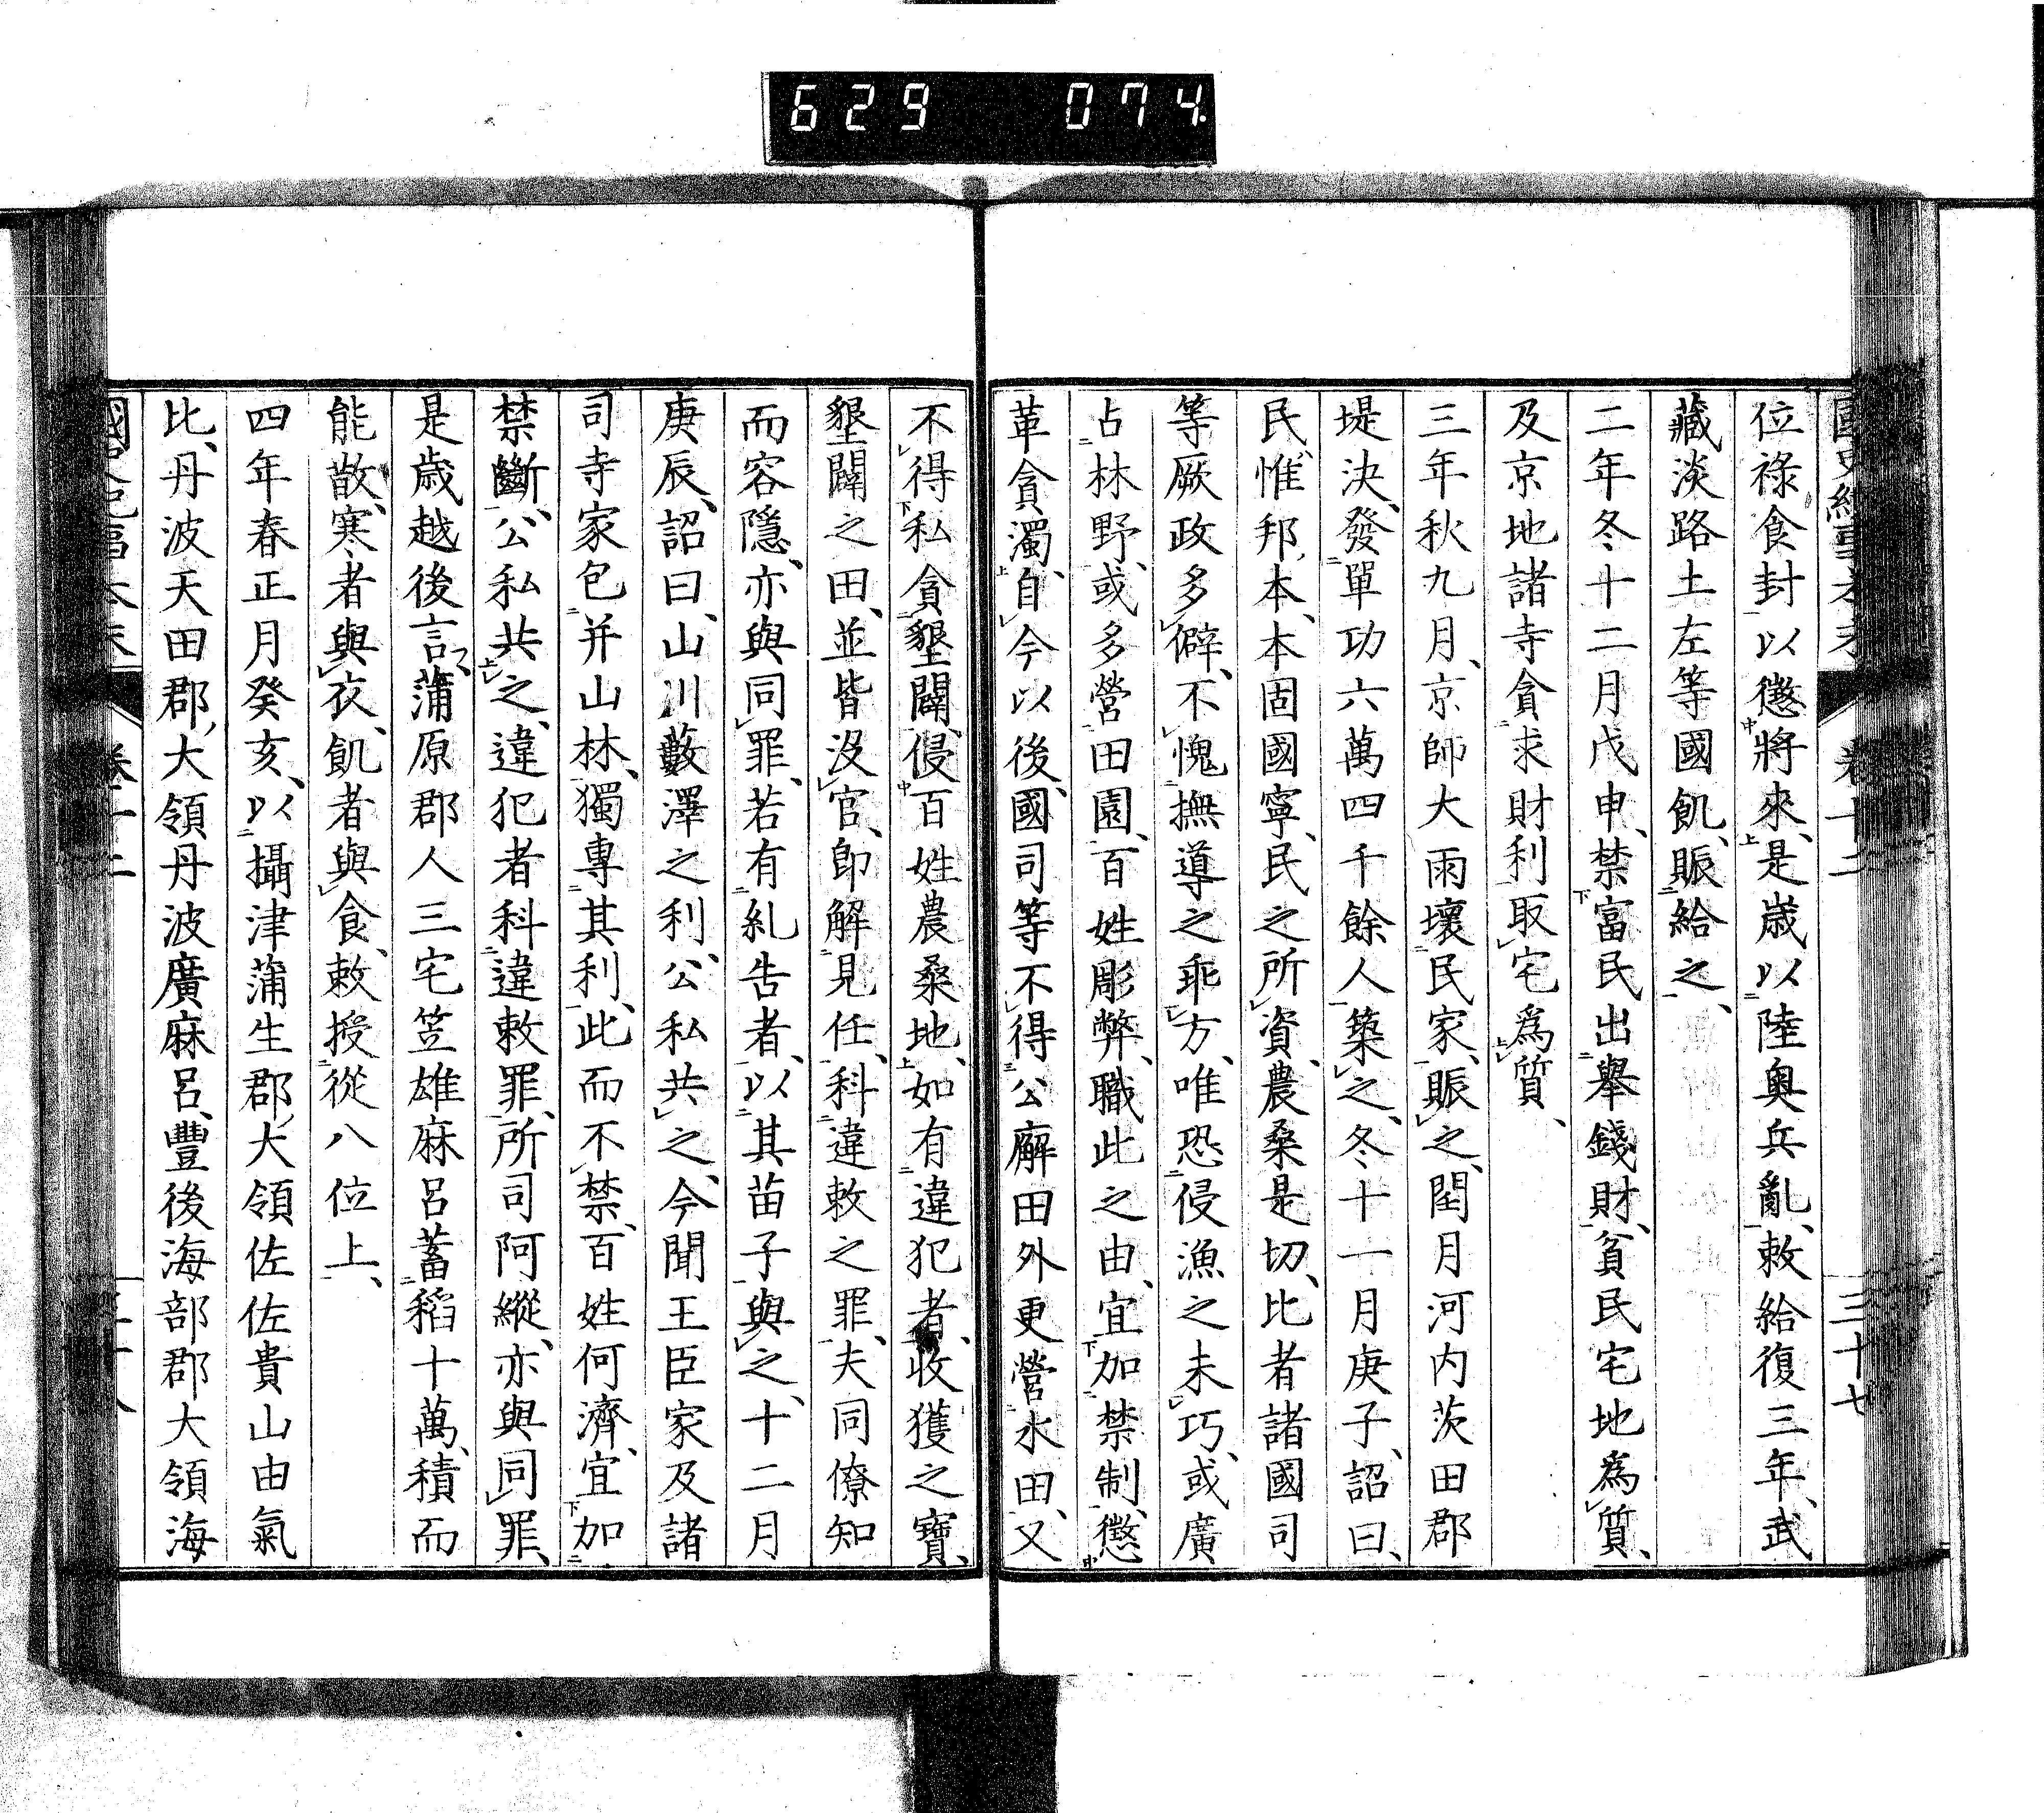 629 074
位祿食封以懲將來、是歲以陸奧兵亂、敕給復三年、武
藏淡路土左等國飢、賑給之、
二年冬十二月戊申、禁富民出舉錢財、貧民宅地爲質、
及京地諸寺貪求財利取宅爲質、
三年秋九月、京師大雨壞民家、賑之、閏月河内茨田郡
堤決、發單功六萬四千餘人築之、冬十一月庚子、詔曰、
民惟邦本、本固國寧、民之所資、農桑是切、比者諸國司
等厥政多僻、不愧撫導之乖方、唯恐侵漁之未巧、或廣
占林野、或多營田園、百姓彫弊、職此之由、宜加禁制、懲
革貪濁、自今以後、國司等不得公廨田外更營水田、又
不得私貪墾闢、侵百姓農桑地、如有違犯者、收獲之寶、
墾闢之田、並皆沒官、即解見任、科違敕之罪、夫同僚知
而容隱、亦與同罪、若有糺告者、以其苗子與之、十二月
庚辰、詔曰、山川藪澤之利、公私共之、今聞王臣家及諸
司寺家包并山林、獨專其利、此而不禁、百姓何濟、宜加
禁斷、公私共之、違犯者科違敕罪、所司阿縱、亦與同罪、
是歲越後言、蒲原郡人三宅笠雄麻呂蓄稻十萬、積而
能散、寒者與衣、飢者與食、敕授從八位上、
四年春正月癸亥、以攝津蒲生郡大領佐佐貴山由氣
比、丹波天田郡大領丹波廣麻呂、豐後海部郡大領海